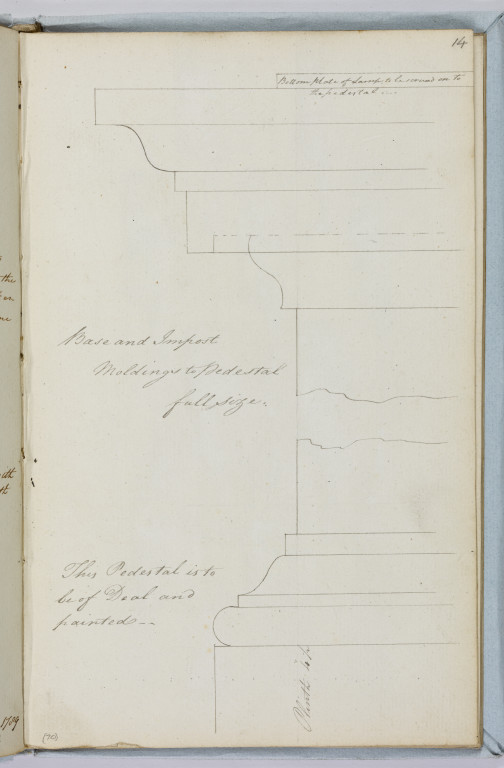 14
Bottom plate of Lamp to be round on to
the pedestal
Base and Impost
Moldings to Pedestal
full size.
This Pedestal is to
be of Deal and
painted --
Plinth
the
ith
1709
(70)